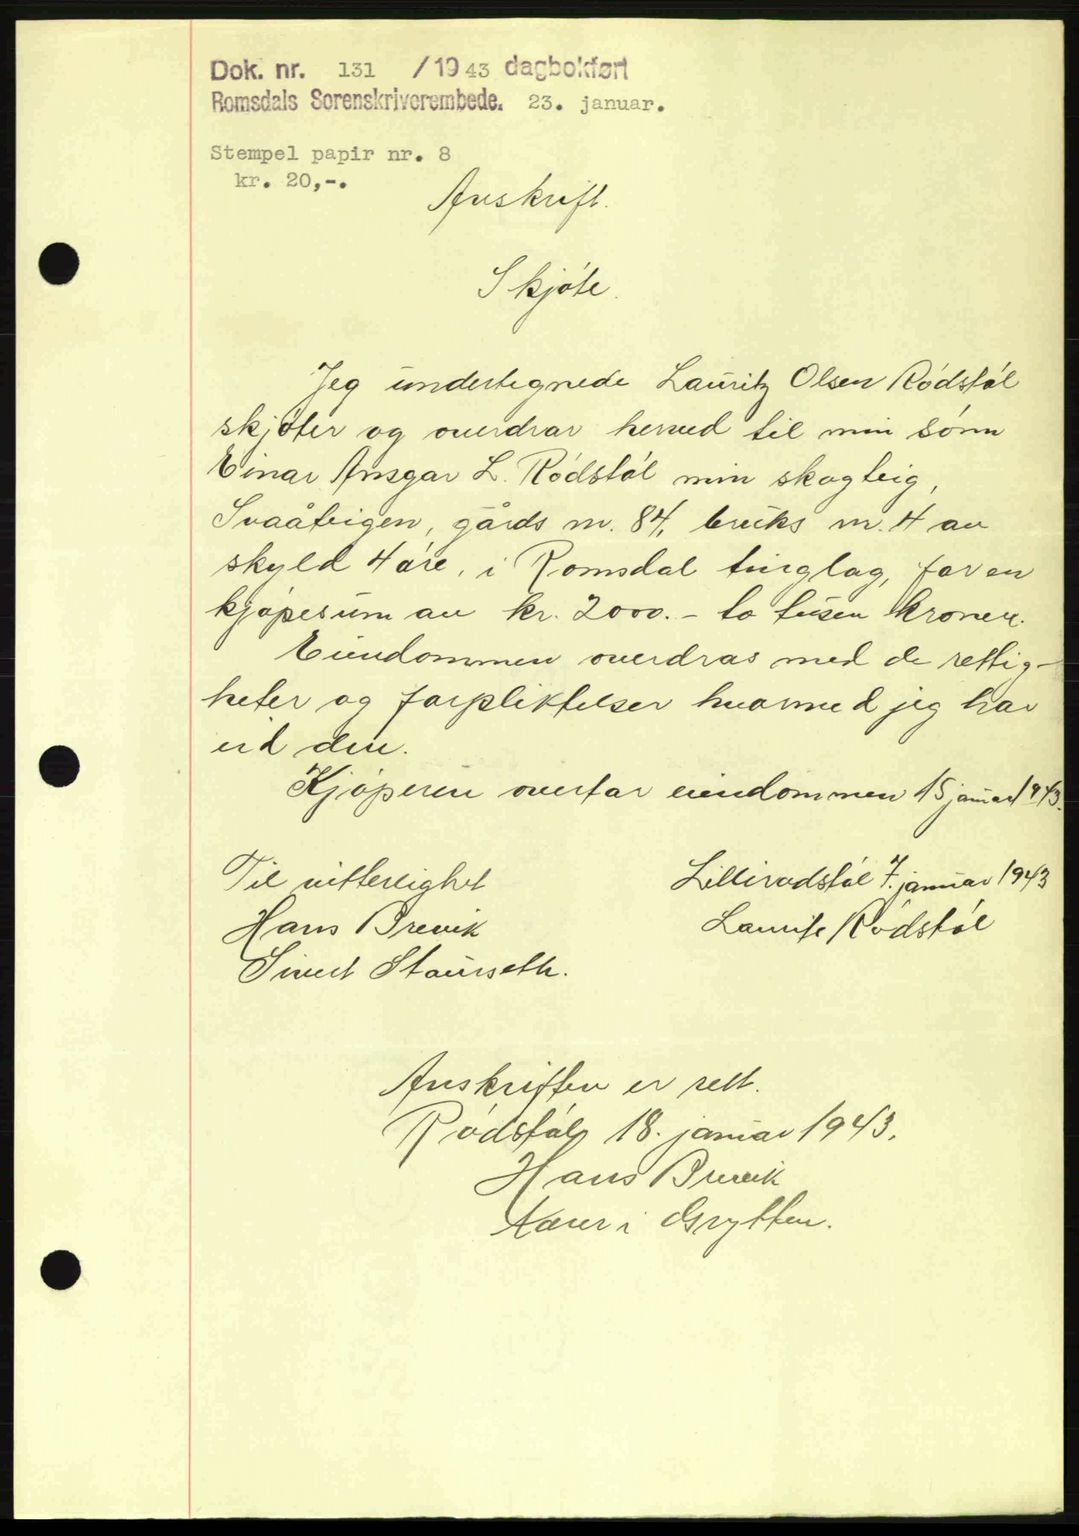 Dok. nr. 131 /1943 dagbokført
Romsdals Sorenskriverembede. 23. januar.
Stempel papir nr. 8
kr. 20,-.
Avskrift.
Skjóte.
Jeg undertegnede Lauritz Olsen Ródstól
skjóter og overdrar herved til min sónn
Einar Ansgar L. Ródstól min skogteig,
Svaåteigen, gårds nr. 84, bruks nr. 4 av
skyld 4 óre, i Romsdal tinglag, for en
kjópesum av kr. 2000.- to tusen kroner.
Eiendommen overdras med de rettig-
heter og forpliktelser hvormed jeg har
eid den.
Kjóperen overtar eiendommen 15 januar 1943.
Til vitterlighet
Lilliródstól 7. januar 1943
Hans Brevik
Lauritz Ródstól
Sivert Staurseth.
Avskriften er rett.
Ródstól 18. januar 1943.
Hans Brevik
Lærer i Grytten.